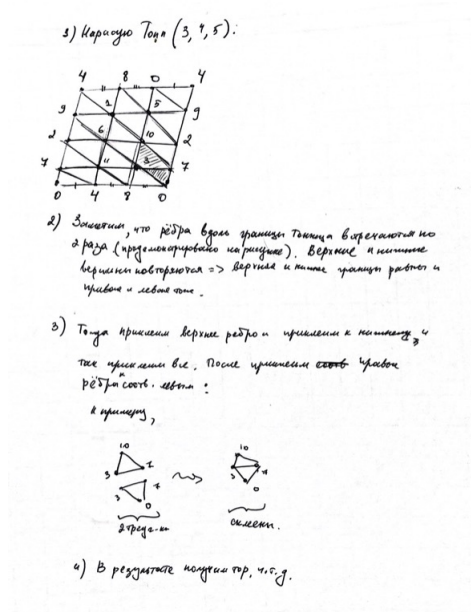 1) Нарисую Тонн (3, 4, 5):
4 8 0 4
9 1 5 9
2 6 10 2
7 11 3 7
0 4 8 0
2) Заметим, что рёбра вдоль границы Тоннца встречаются по
2 раза (продемонстрировано на рисунке). Верхние и нижние
вершины повторяются => верхняя и нижняя границы равны и
правая и левая тоже.
3) Тогда приклеим верхнее ребро и приклеим к нижнему, и
так приклеим все. После приклеим правые
рёбра к соотв. левым:
к примеру,
10
3 7
3 7
0
10
3 7
0
2 треуг-ка
склеен.
4) В результате получим тор, ч.т.д.